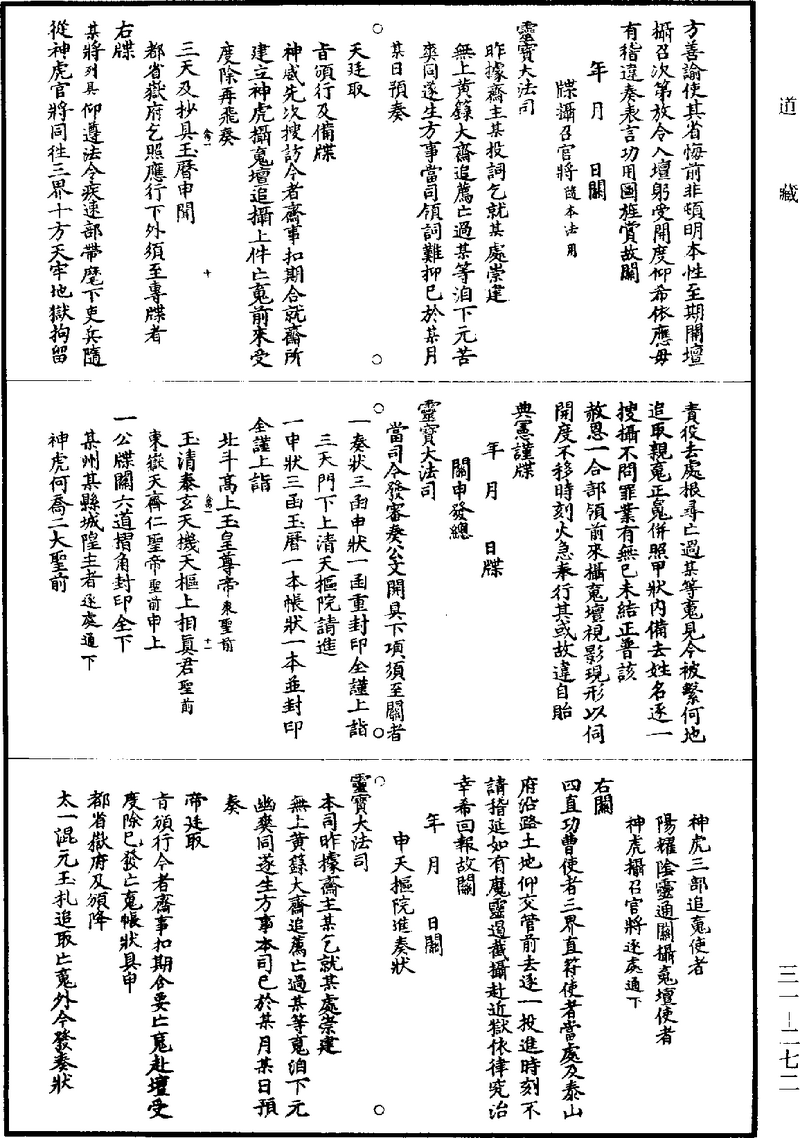 道藏
方善諭使其省悔前非頓明本性至期開壇
攝召次第放令入壇躬受開度仰希依應毋
有稽違奏表言功用圖旌賞故關
年　月　　日關
牒攝召官將隨本法用
靈寶大法司
昨據齋主某投詞乞就某處崇建
無上黃籙大齋追薦亡過某等洎下元苦
爽同遂生方事當司領詞難抑已於某月
某日預奏
天廷取
旨頒行及備牒
神威先次搜訪今者齋事扣期合就齋所
建立神虎攝䰟壇追攝上件亡䰟前來受
度除再飛奏
三天及抄具玉曆申聞
都省嶽府乞照應行下外須至專牒者
右牒
某將列具仰遵法令疾速部帶麾下吏兵隨
從神虎官將同徃三界十方天牢地獄拘留
責役去處根尋亡過某等䰟見今被繫何地
追取親䰟正䰟併照甲狀內備去姓名逐一
搜攝不問罪業有無已未結正普該
赦恩一合部領前來攝䰟壇視影現形以伺
開度不移時刻火急奉行其或故違自貽
典憲謹牒
年　月　　日牒
關申發總
靈寶大法司
當司今發審奏公文開具下項須至關者
一奏狀三函申狀一函重封印全謹上詣
三天門下上清天樞院請進
一申狀三函玉曆一本帳狀一本並封印
全謹上詣
北斗高上玉皇尊帝東聖前
玉清泰玄天機天樞上相眞君聖前
東嶽天齊仁聖帝聖前申上
一公牒關六道摺角封印全下
某州某縣城隍主者逐處通下
神虎何喬二大聖前
神虎三部追䰟使者
陽耀陰靈通關攝䰟壇使者
神虎攝召官將逐處通下
右關
四直功曹使者三界直符使者當處及泰山
府沿路土地仰交管前去逐一投進時刻不
請揩延如有魔靈遏截攝赴近獄依律究治
幸希回報故關
年　月　　日關
申天樞院進奏狀
靈寶大法司
本司昨據齋主某乞就某處崇建
無上黃籙大齋追薦亡過某等䰟洎下元
幽爽同遂生方事本司已於某月某日預
奏
帝廷取
旨頒行今者齋事扣期合要亡䰟赴壇受
度除已發亡䰟帳狀具申
都省嶽府及頒降
太一混元玉札追取亡䰟外今發奏狀
三一—二七二